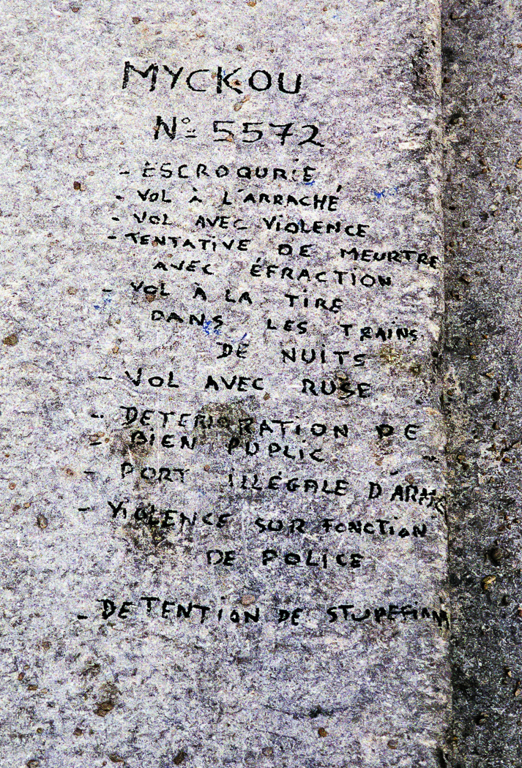 MYCKOU
N° 5572
- ESCROQURIE
- VOL À L'ARRACHÉ
- VOL AVEC VIOLENCE
- TENTATIVE DE MEURTRE
AVEC ÉFRACTION
- VOL À LA TIRE
DANS LES TRAINS
DE NUITS
- VOL AVEC RUSE
- DETERIORATION DE
- BIEN PUBLIC
- PORT ILLÉGALE D'ARME
- VIOLENCE SUR FONCTION
DE POLICE
- DETENTION DE STUPEFIANT